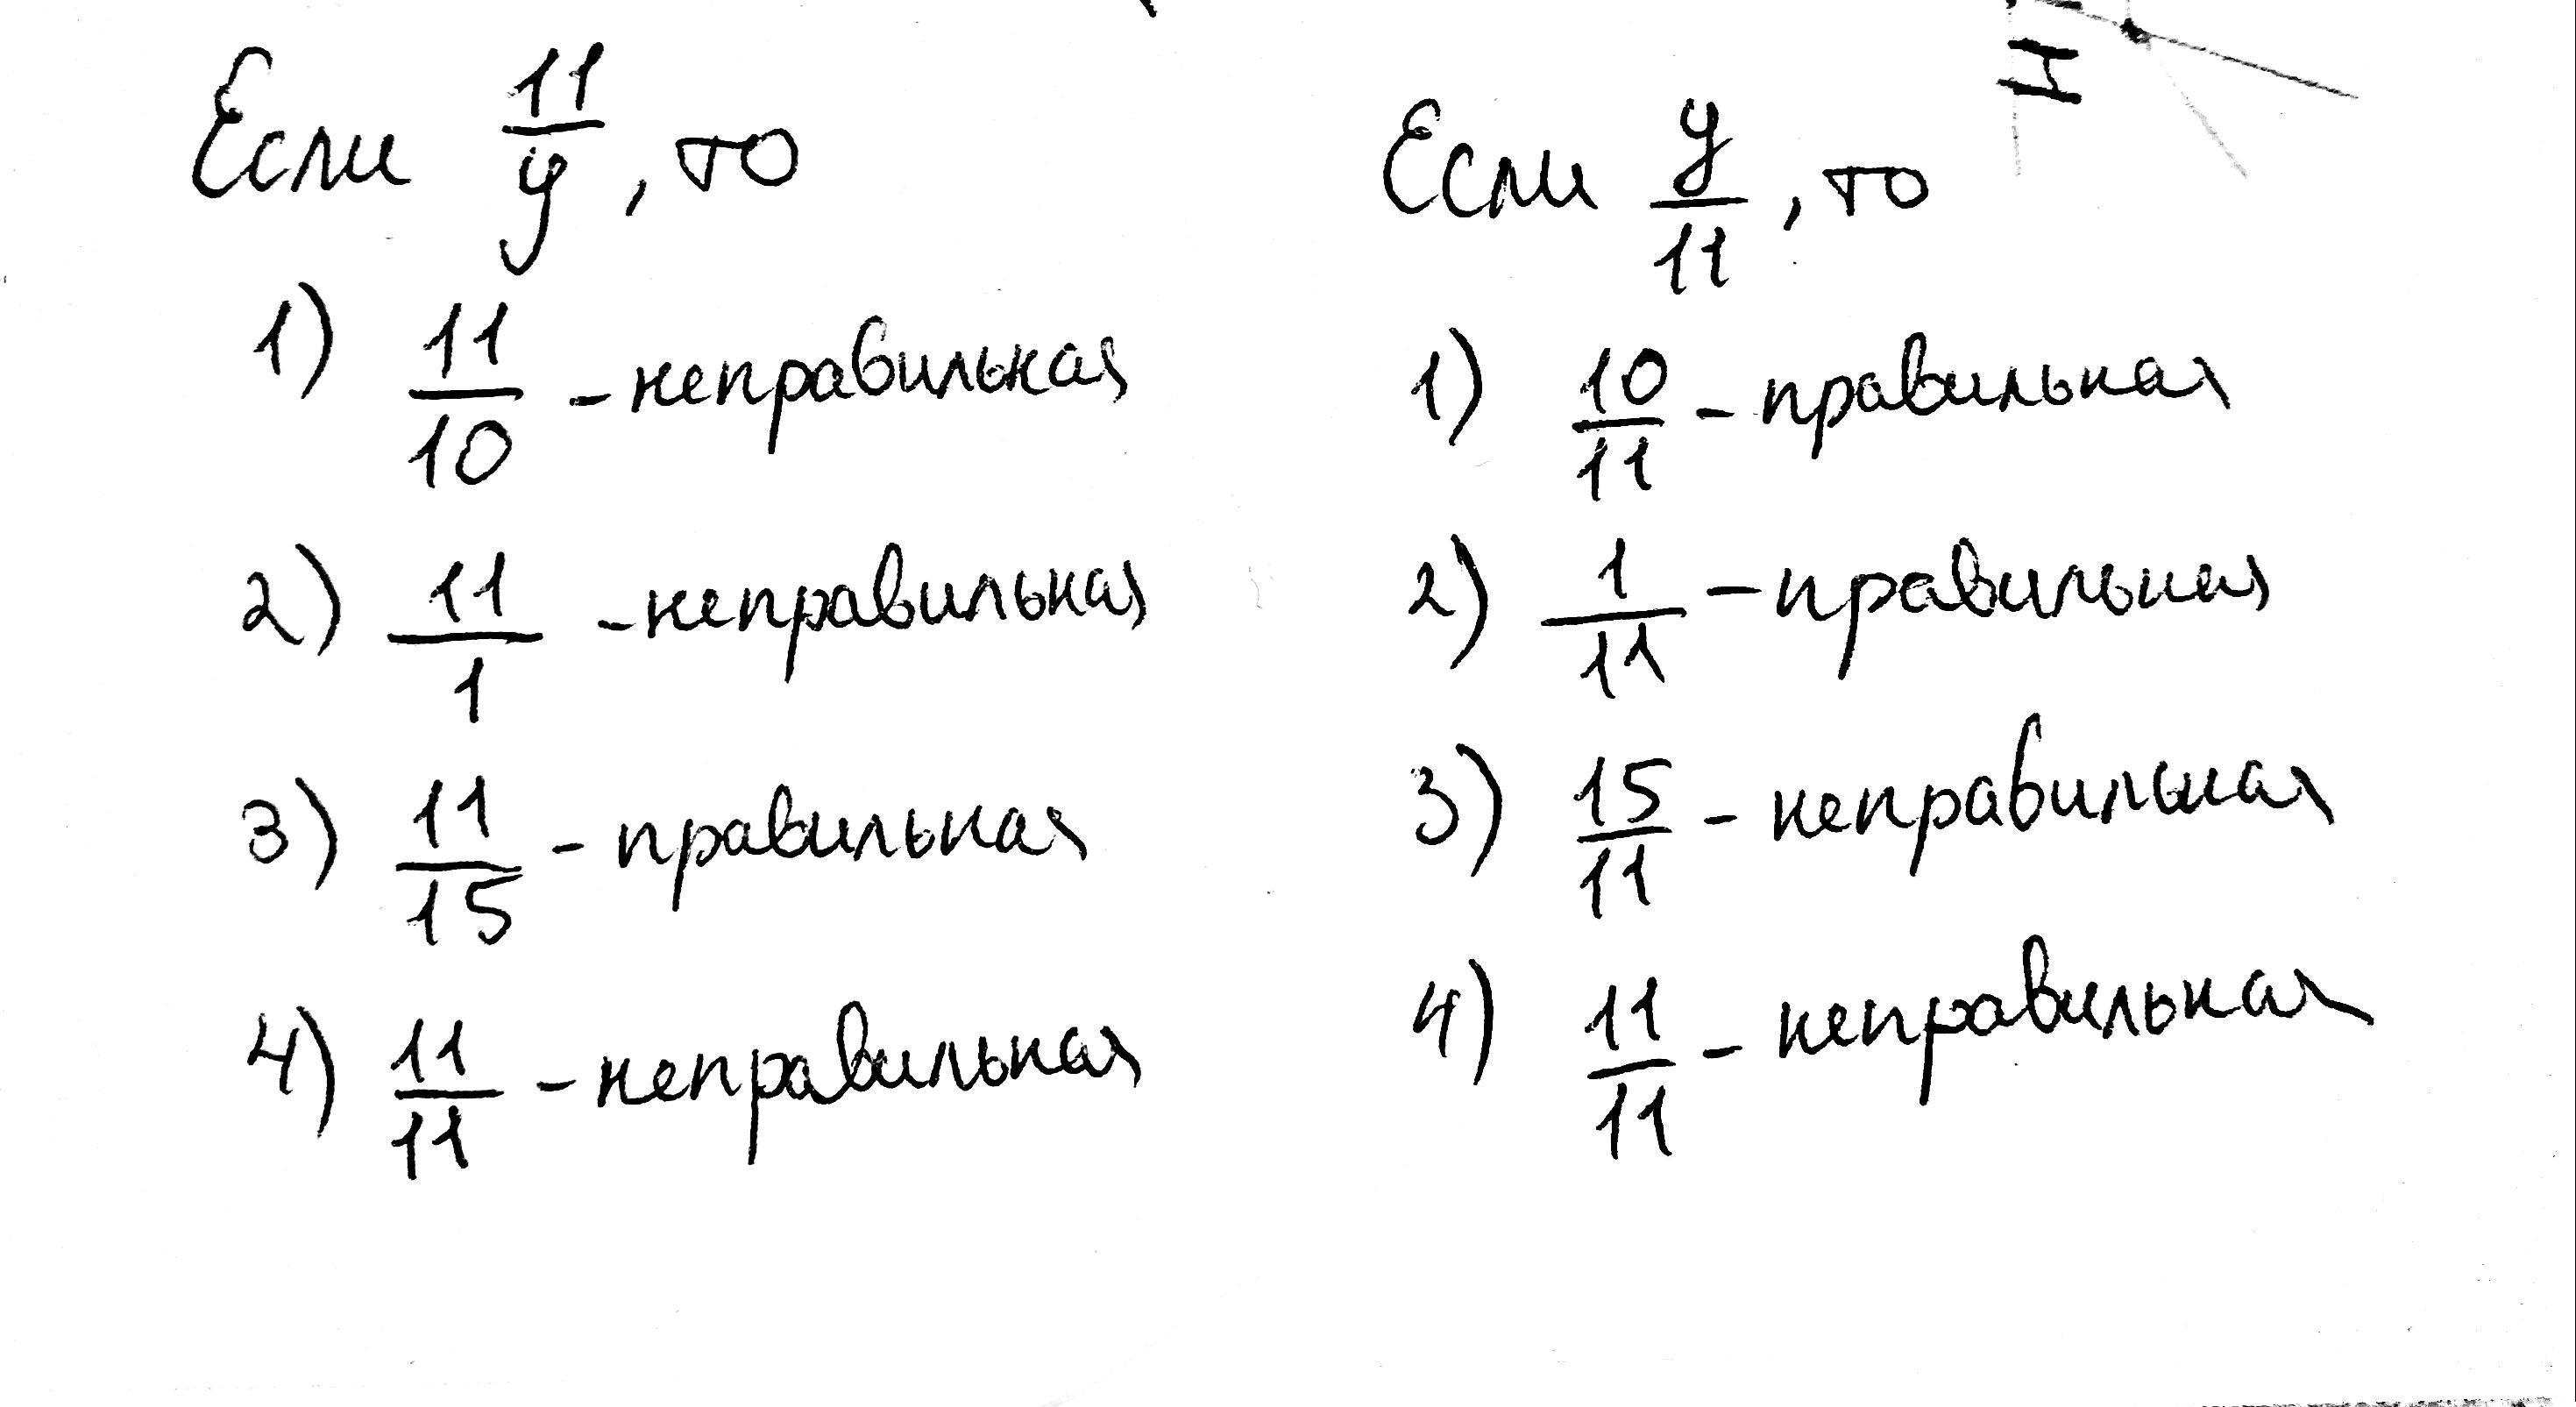 Если 11/y, то
1) 11/10 - неправильная
2) 11/1 - неправильная
3) 11/15 - правильная
4) 11/11 - неправильная
Н
Если y/11, то
1) 10/11 - правильная
2) 1/11 - правильная
3) 15/11 - неправильная
4) 11/11 - неправильная